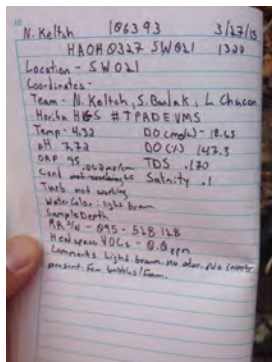 N. Keltch 106393 3/27/13
HAOH0327 SW021 1320
Location - SW021
Coordinates -
Team - N. Keltch, S. , L Chacon
Horiba # TPADEVMS
Temp - 4.32 DO (mg/L) - 18.63
pH 7.72 DO (%) 147.3
ORP 95 TDS .120
Cond Salinity .1
Turb not working
Water Color: light brown
Sample Depth
MR S/N - 095 - 528 128
Headspace VOCs - 0.0 ppm
Comments Light brown. no odor. No
present. Few bubbles/foam.